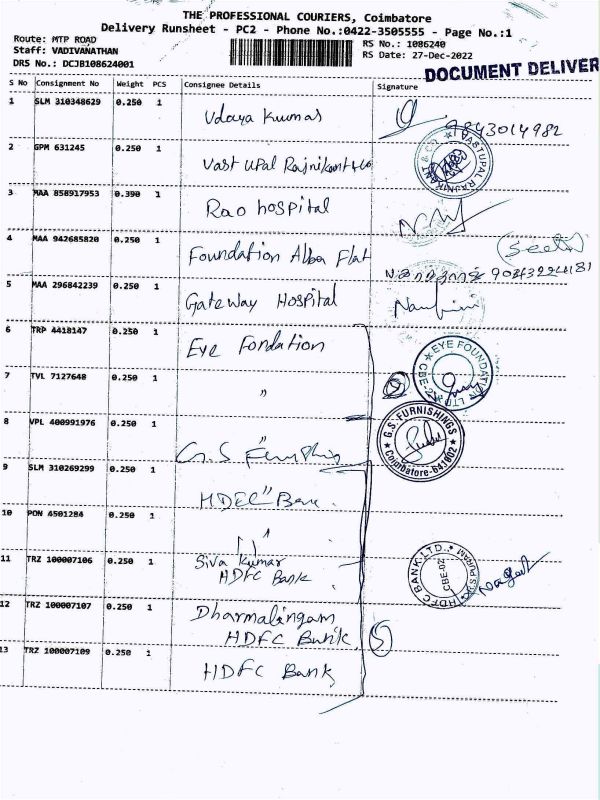 THE PROFESSIONAL COURIERS, Coimbatore
Delivery Runsheet - PC2 - Phone No.:0422-3505555 - Page No.:1
Route: MTP ROAD
RS No.: 1086240
Staff: VADIVANATHAN
RS Date: 27-Dec-2022
DRS No.: DCJB108624001
DOCUMENT DELIVER
S No Consignment No Weight PCS Consignee Details Signature
1 SLM 310348629 0.250 1 Udaya Kumar
9843014982
2 GPM 631245 0.250 1 Vastupal Rajnikant & Co
VASTUPAL RAJNIKANT & CO
3 MAA 858917953 0.390 1 Rao hospital
4 MAA 942685820 0.250 1 Foundation Alba Flat
5 MAA 296842239 0.250 1 Gateway Hospital
6 TRP 4418147 0.250 1 Eye Fondation
EYE FOUNDATION LTD CBE-2
7 TVL 7127648 0.250 1 "
8 VPL 400991976 0.250 1 "
G.S
G.S. FURNISHINGS Coimbatore-641002
9 SLM 310269299 0.250 1 HDFC Bank
"
10 PON 4501284 0.250 1 "
11 TRZ 100007106 0.250 1 Siva Kumar
HDFC Bank
HDFC BANK LTD. R.S. PURAM CBE-02
12 TRZ 100007107 0.250 1 Dharmalingam
HDFC Bank
13 TRZ 100007109 0.250 1 HDFC Bank